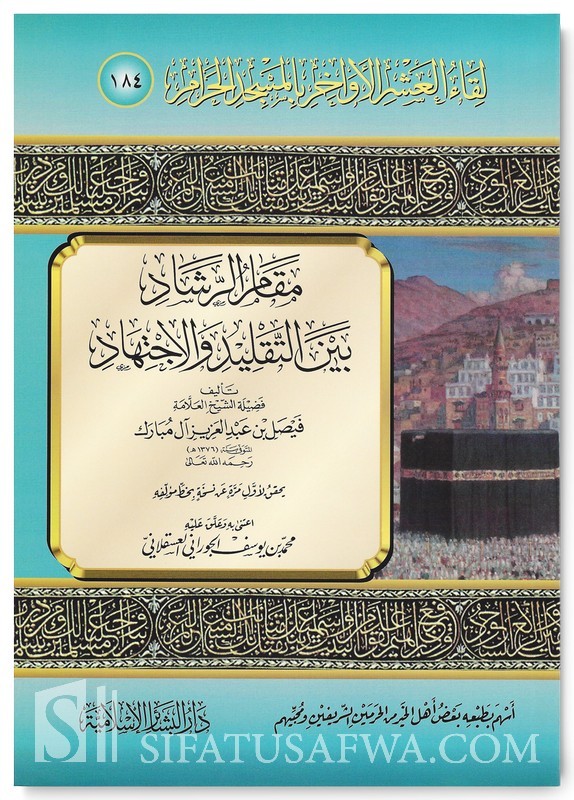 لِقَاءُ العَشْرِ الأَوَاخِرِ بِالمَسْجِدِ الحَرَامِ
١٨٤
مَقَامُ الرَّشَادِ
بَيْنَ التَّقْلِيدِ وَالاجْتِهَادِ
تَأليفُ
فَضِيلَة الشَّيْخ العَلَّامَة
فَيْصَل بن عَبْد العَزِيز آل مُبَارَك
المتوفى سنة (١٣٧٦ هـ)
رَحِمَه الله تَعَالى
يحقق لأوّل مَرّة عن نسخة بخطّ مؤلفه
اعتنى به وعَلّق عَليْه
محمّد بن يوسف الجوراني العسقلاني
أسهم بطبعه بعض أهل الخير من الحرمين الشريفين ومحبيهم
دَارُ البَشَائِرِ الإِسْلَامِيَّة
SIFATUSAFWA.COM